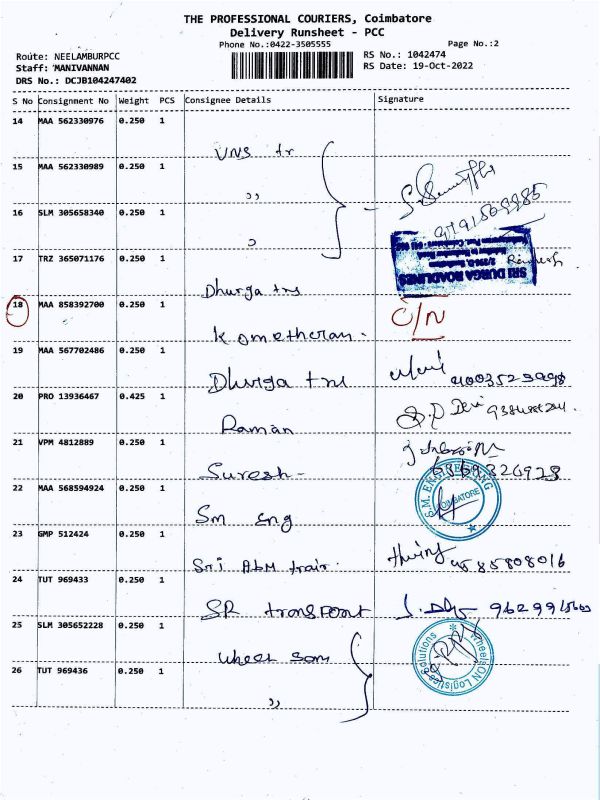 THE PROFESSIONAL COURIERS, Coimbatore
Delivery Runsheet - PCC
Phone No.:0422-3505555
Page No.:2
Route: NEELAMBURPCC
RS No.: 1042474
Staff: MANIVANNAN
RS Date: 19-Oct-2022
DRS No.: DCJB104247402
S No Consignment No Weight PCS Consignee Details Signature
14 MAA 562330976 0.250 1
VNS tr
15 MAA 562330989 0.250 1
,,
16 SLM 305658340 0.250 1
,,
17 TRZ 365071176 0.250 1
SRI DURGA ROADLINES
Dhurga tns
18 MAA 858392700 0.250 1
O/N
19 MAA 567702486 0.250 1
Dhurga tns
20 PRO 13936467 0.425 1
Raman
21 VPM 4812889 0.250 1
Suresh-
22 MAA 568594924 0.250 1
S.M. ENGINEERING
COIMBATORE
Sm eng
23 GMP 512424 0.250 1
Sri ABM
24 TUT 969433 0.250 1
SR transport
25 SLM 305652228 0.250 1
WheelSON Logistics Solutions
wheel son
26 TUT 969436 0.250 1
,,